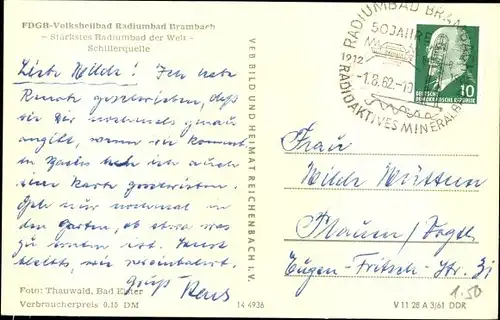 FDGB-Volksheilbad Radiumbad Brambach
- Stärkstes Radiumbad der Welt -
Schillerquelle
Liebe Milde! Ich habe
Renate geschrieben, daß
sie Dir nochmals genau
angibt, wenn sie kommt.
In habe ich auch
eine Karte geschrieben.
Geh nur nochmal in
den Garten, ob etwas
zu ernten ist. Sonst
bleibts, wie vereinbart.
Gruß
Foto: Thauwald, Bad Elster
Verbraucherpreis 0.15 DM
14 4936
VEB BILD UND HEIMAT REICHENBACH I.V.
RADIUMBAD BRAMBACH
50 JAHRE
1912
-1.8.62.-10
RADIOAKTIVES MINERALB
10
DEUTSCHE
DEMOKRATISCHE REPUBLIK
Frau
Milde
Plauen/Vogtl.
Eugen-Fritsch-Str. 3
1.50
V 11 28 A 3/61 DDR